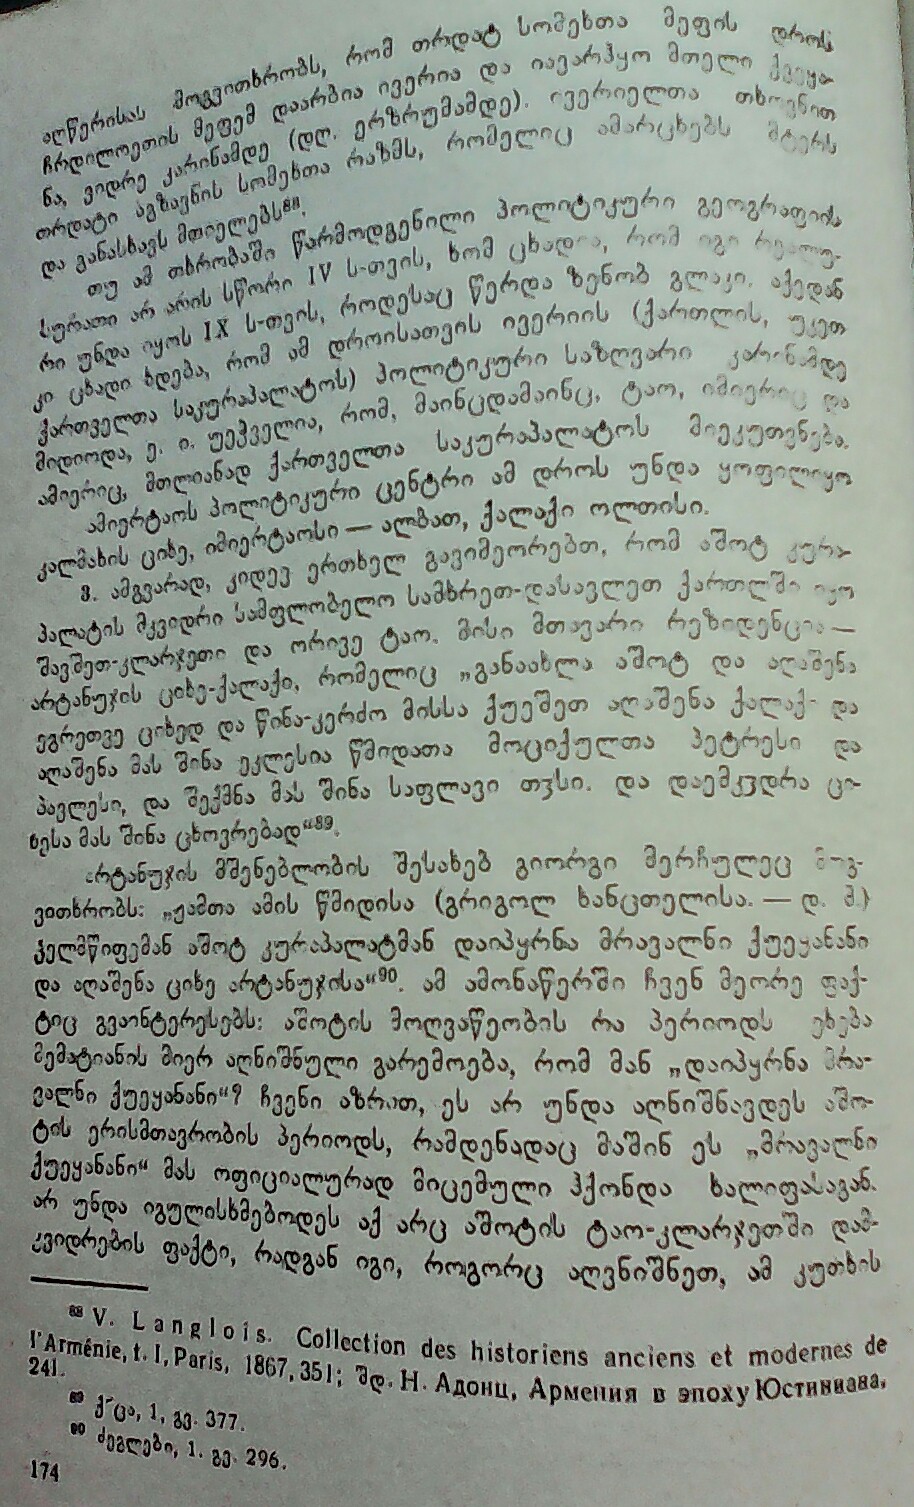 აღწერისას მოგვითხრობს, რომ თრდატ სომეხთა მეფის დროს
ჩრდილოეთის მეფემ დაარბია ივერია და იავარჰყო მთელი ქვეყა-
ნა, ვიდრე კარინამდე (დღ. ერზრუმამდე). ივერიელთა თხოვნით
თრდატი აგზავნის სომეხთა რაზმს, რომელიც ამარცხებს მტერს
და განასხავს მთიელებს⁸⁸.
თუ ამ თხრობაში წარმოდგენილი პოლიტიკური გეოგრაფიის
სურათი არ არის სწორი IV ს-თვის, ხომ ცხადია, რომ იგი რეალუ-
რი უნდა იყოს IX ს-თვის, როდესაც წერდა ზენობ გლაკი. აქედან
კი ცხადი ხდება, რომ ამ დროისათვის ივერიის (ქართლის, უკეთ
ქართველთა საკურაპალატოს) პოლიტიკური საზღვარი კარინამდე
მიდიოდა, ე. ი. უეჭველია, რომ, მაინცდამაინც, ტაო, იმიერიც და
ამიერიც, მთლიანად ქართველთა საკურაპალატოს მიეკუთვნება.
ამიერტაოს პოლიტიკური ცენტრი ამ დროს უნდა ყოფილიყო
კალმახის ციხე, იმიერტაოსი — ალბათ, ქალაქი ოლთისი.
3. ამგვარად, კიდევ ერთხელ გავიმეორებთ, რომ აშოტ კურა-
პალატის მკვიდრი სამფლობელო სამხრეთ-დასავლეთ ქართლში იყო
შავშეთ-კლარჯეთი და ორივე ტაო. მისი მთავარი რეზიდენცია —
არტანუჯის ციხე-ქალაქი, რომელიც „განაახლა აშოტ და აღაშენა
ეგრეთვე ციხედ და წინა-კერძო მისსა ქუეშეთ აღაშენა ქალაქ- და
აღაშენა მას შინა ეკლესია წმიდათა მოციქულთა პეტრესი და
პავლესი, და შექმნა მას შინა საფლავი თჳსი. და დაემკჳდრა ცი-
ხესა მას შინა ცხოვრებად“⁸⁹.
არტანუჯის მშენებლობის შესახებ გიორგი მერჩულეც მოგ-
ვითხრობს: „ჟამთა ამის წმიდისა (გრიგოლ ხანცთელისა. — დ. მ.)
ჴელმწიფემან აშოტ კურაპალატმან დაიპყრნა მრავალნი ქუეყანანი
და აღაშენა ციხე არტანუჯისა“⁹⁰. ამ ამონაწერში ჩვენ მეორე ფაქ-
ტიც გვაინტერესებს: აშოტის მოღვაწეობის რა პერიოდს ეხება
მემატიანის მიერ აღნიშნული გარემოება, რომ მან „დაიპყრნა მრა-
ვალნი ქუეყანანი“? ჩვენი აზრით, ეს არ უნდა აღნიშნავდეს აშო-
ტის ერისმთავრობის პერიოდს, რამდენადაც მაშინ ეს „მრავალნი
ქუეყანანი“ მას ოფიციალურად მიცემული ჰქონდა ხალიფასაგან.
არ უნდა იგულისხმებოდეს აქ არც აშოტის ტაო-კლარჯეთში დამ-
კვიდრების ფაქტი, რადგან იგი, როგორც აღვნიშნეთ, ამ კუთხის
⁸⁸ V. Langlois. Collection des historiens anciens et modernes de
l'Arménie, t. I, Paris, 1867, 351; შდ. Н. Адонц, Армения в эпоху Юстиниана,
241.
⁸⁹ ქ~ცა, 1, გვ. 377.
⁹⁰ ძეგლები, 1. გვ. 296.
174